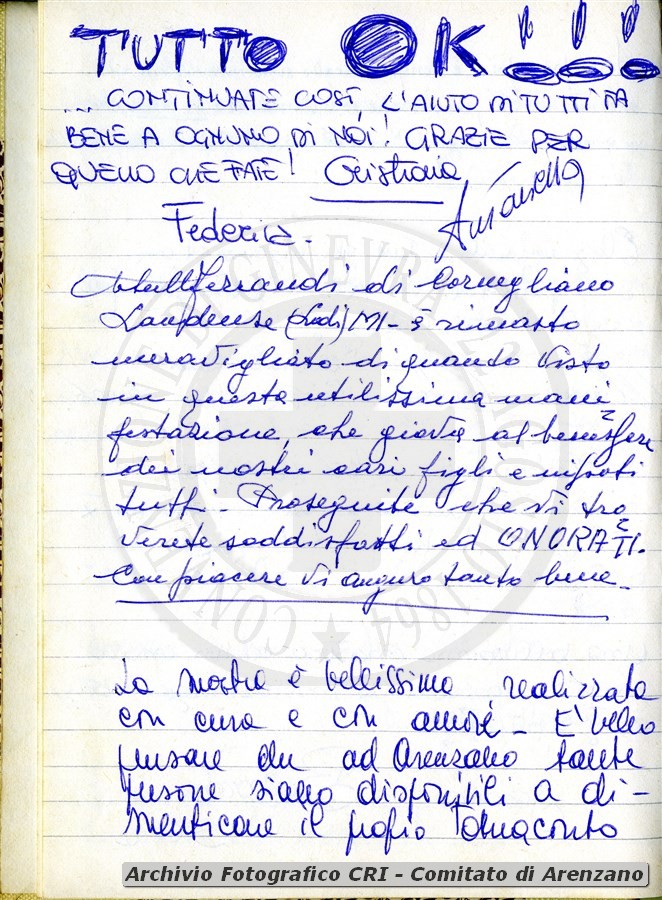 TUTTO OK!!!
... CONTINUATE COSÌ, L'AIUTO DI TUTTI FA
BENE A OGNUNO DI NOI! GRAZIE PER
QUELLO CHE FATE! Cristiana
Antonella
Federica.
Ferrandi di Cornegliano
Laudense (Lodi) MI - è rimasto
meravigliato di quando visto
in questa utilissima mani
festazione, che giova al benessere
dei nostri cari figli e nipoti
tutti - Proseguite che vi tro
verete soddisfatti ed ONORATI.
Con piacere vi auguro tanto bene -
La mostra è bellissima realizzata
con cura e con amore - E' bello
pensare che ad Arenzano tante
persone siano disponibili a di-
menticare il proprio tornaconto
CONVENZIONE DI GINEVRA 22 AGOSTO 1864
Archivio Fotografico CRI - Comitato di Arenzano